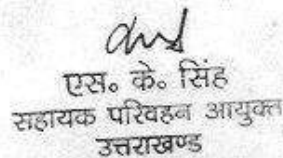 एस० के० सिंह
सहायक परिवहन आयुक्त
उत्तराखण्ड